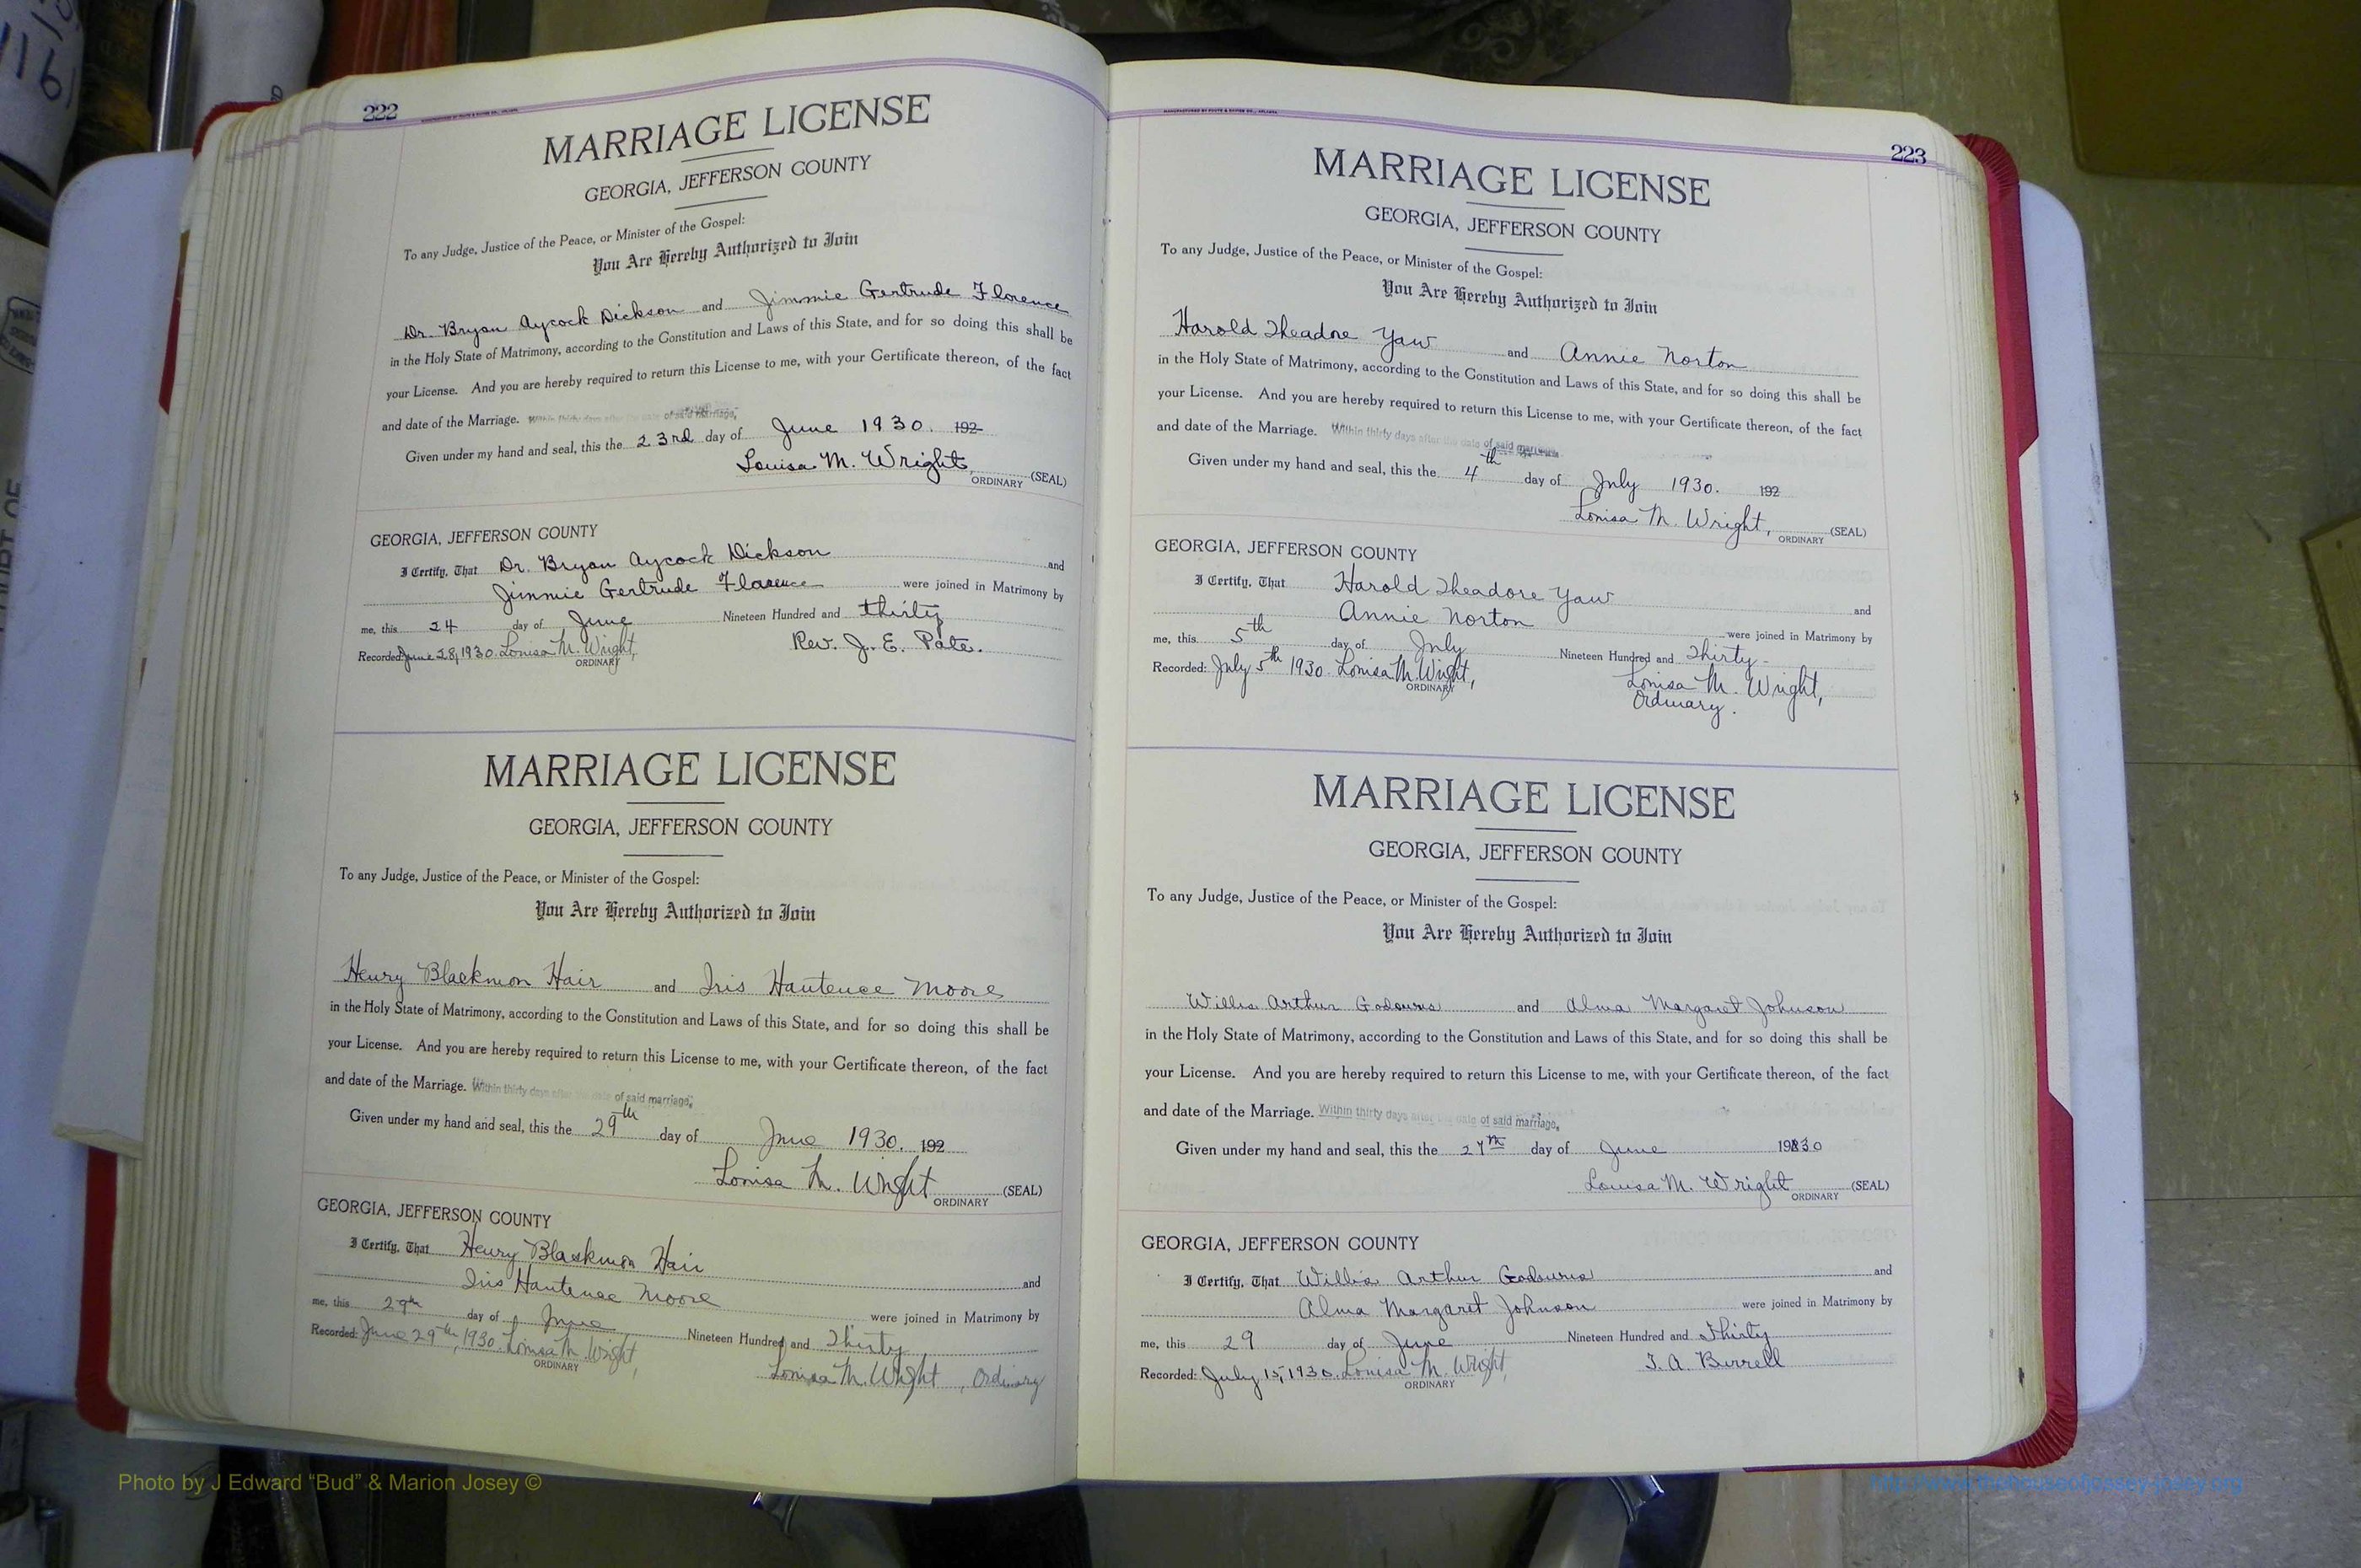 222
MARRIAGE LICENSE
GEORGIA, JEFFERSON COUNTY
To any Judge, Justice of the Peace, or Minister of the Gospel:
You Are Hereby Authorized to Join
Dr. Bryan Aycock Dickson and Jimmie Gertrude Florence
in the Holy State of Matrimony, according to the Constitution and Laws of this State, and for so doing this shall be
your License. And you are hereby required to return this License to me, with your Certificate thereon, of the fact
and date of the Marriage. Within thirty days after the date of said marriage,
Given under my hand and seal, this the 23rd day of June 1930. 192
Louisa M. Wright, (SEAL)
ORDINARY
GEORGIA, JEFFERSON COUNTY
I Certify, That Dr. Bryan Aycock Dickson and
Jimmie Gertrude Florence were joined in Matrimony by
me, this 24 day of June Nineteen Hundred and thirty
Recorded: June 28, 1930. Louisa M. Wright, Rev. J. E. Pate.
ORDINARY
MARRIAGE LICENSE
GEORGIA, JEFFERSON COUNTY
To any Judge, Justice of the Peace, or Minister of the Gospel:
You Are Hereby Authorized to Join
Henry Blackmon Hair and Iris Hautence Moore
in the Holy State of Matrimony, according to the Constitution and Laws of this State, and for so doing this shall be
your License. And you are hereby required to return this License to me, with your Certificate thereon, of the fact
and date of the Marriage. Within thirty days after the date of said marriage,
Given under my hand and seal, this the 29th day of June 1930. 192
Louisa M. Wright (SEAL)
ORDINARY
GEORGIA, JEFFERSON COUNTY
I Certify, That Henry Blackmon Hair
Iris Hautence Moore and
me, this 29th day of June were joined in Matrimony by
Recorded: June 29th, 1930. Louisa M. Wright, Nineteen Hundred and Thirty
ORDINARY
Louisa M. Wright, Ordinary
223
MARRIAGE LICENSE
GEORGIA, JEFFERSON COUNTY
To any Judge, Justice of the Peace, or Minister of the Gospel:
You Are Hereby Authorized to Join
Harold Theadore Yaw and Annie Norton
in the Holy State of Matrimony, according to the Constitution and Laws of this State, and for so doing this shall be
your License. And you are hereby required to return this License to me, with your Certificate thereon, of the fact
and date of the Marriage. Within thirty days after the date of said marriage
Given under my hand and seal, this the 4th day of July 1930. 192
Louisa M. Wright, (SEAL)
ORDINARY
GEORGIA, JEFFERSON COUNTY
I Certify, That Harold Theadore Yaw and
Annie Norton were joined in Matrimony by
me, this 5th day of July Nineteen Hundred and Thirty
Recorded: July 5th 1930. Louisa M. Wright, Louisa M. Wright,
ORDINARY Ordinary.
MARRIAGE LICENSE
GEORGIA, JEFFERSON COUNTY
To any Judge, Justice of the Peace, or Minister of the Gospel:
You Are Hereby Authorized to Join
Willis Arthur and Alma Margaret Johnson
in the Holy State of Matrimony, according to the Constitution and Laws of this State, and for so doing this shall be
your License. And you are hereby required to return this License to me, with your Certificate thereon, of the fact
and date of the Marriage. Within thirty days after the date of said marriage,
Given under my hand and seal, this the 27th day of June 1930
Louisa M. Wright (SEAL)
ORDINARY
GEORGIA, JEFFERSON COUNTY
I Certify, That Willis Arthur and
Alma Margaret Johnson were joined in Matrimony by
me, this 29 day of June Nineteen Hundred and Thirty
Recorded: July 15, 1930. Louisa M. Wright, T. A. Burrell
ORDINARY
Photo by J Edward “Bud” & Marion Josey ©